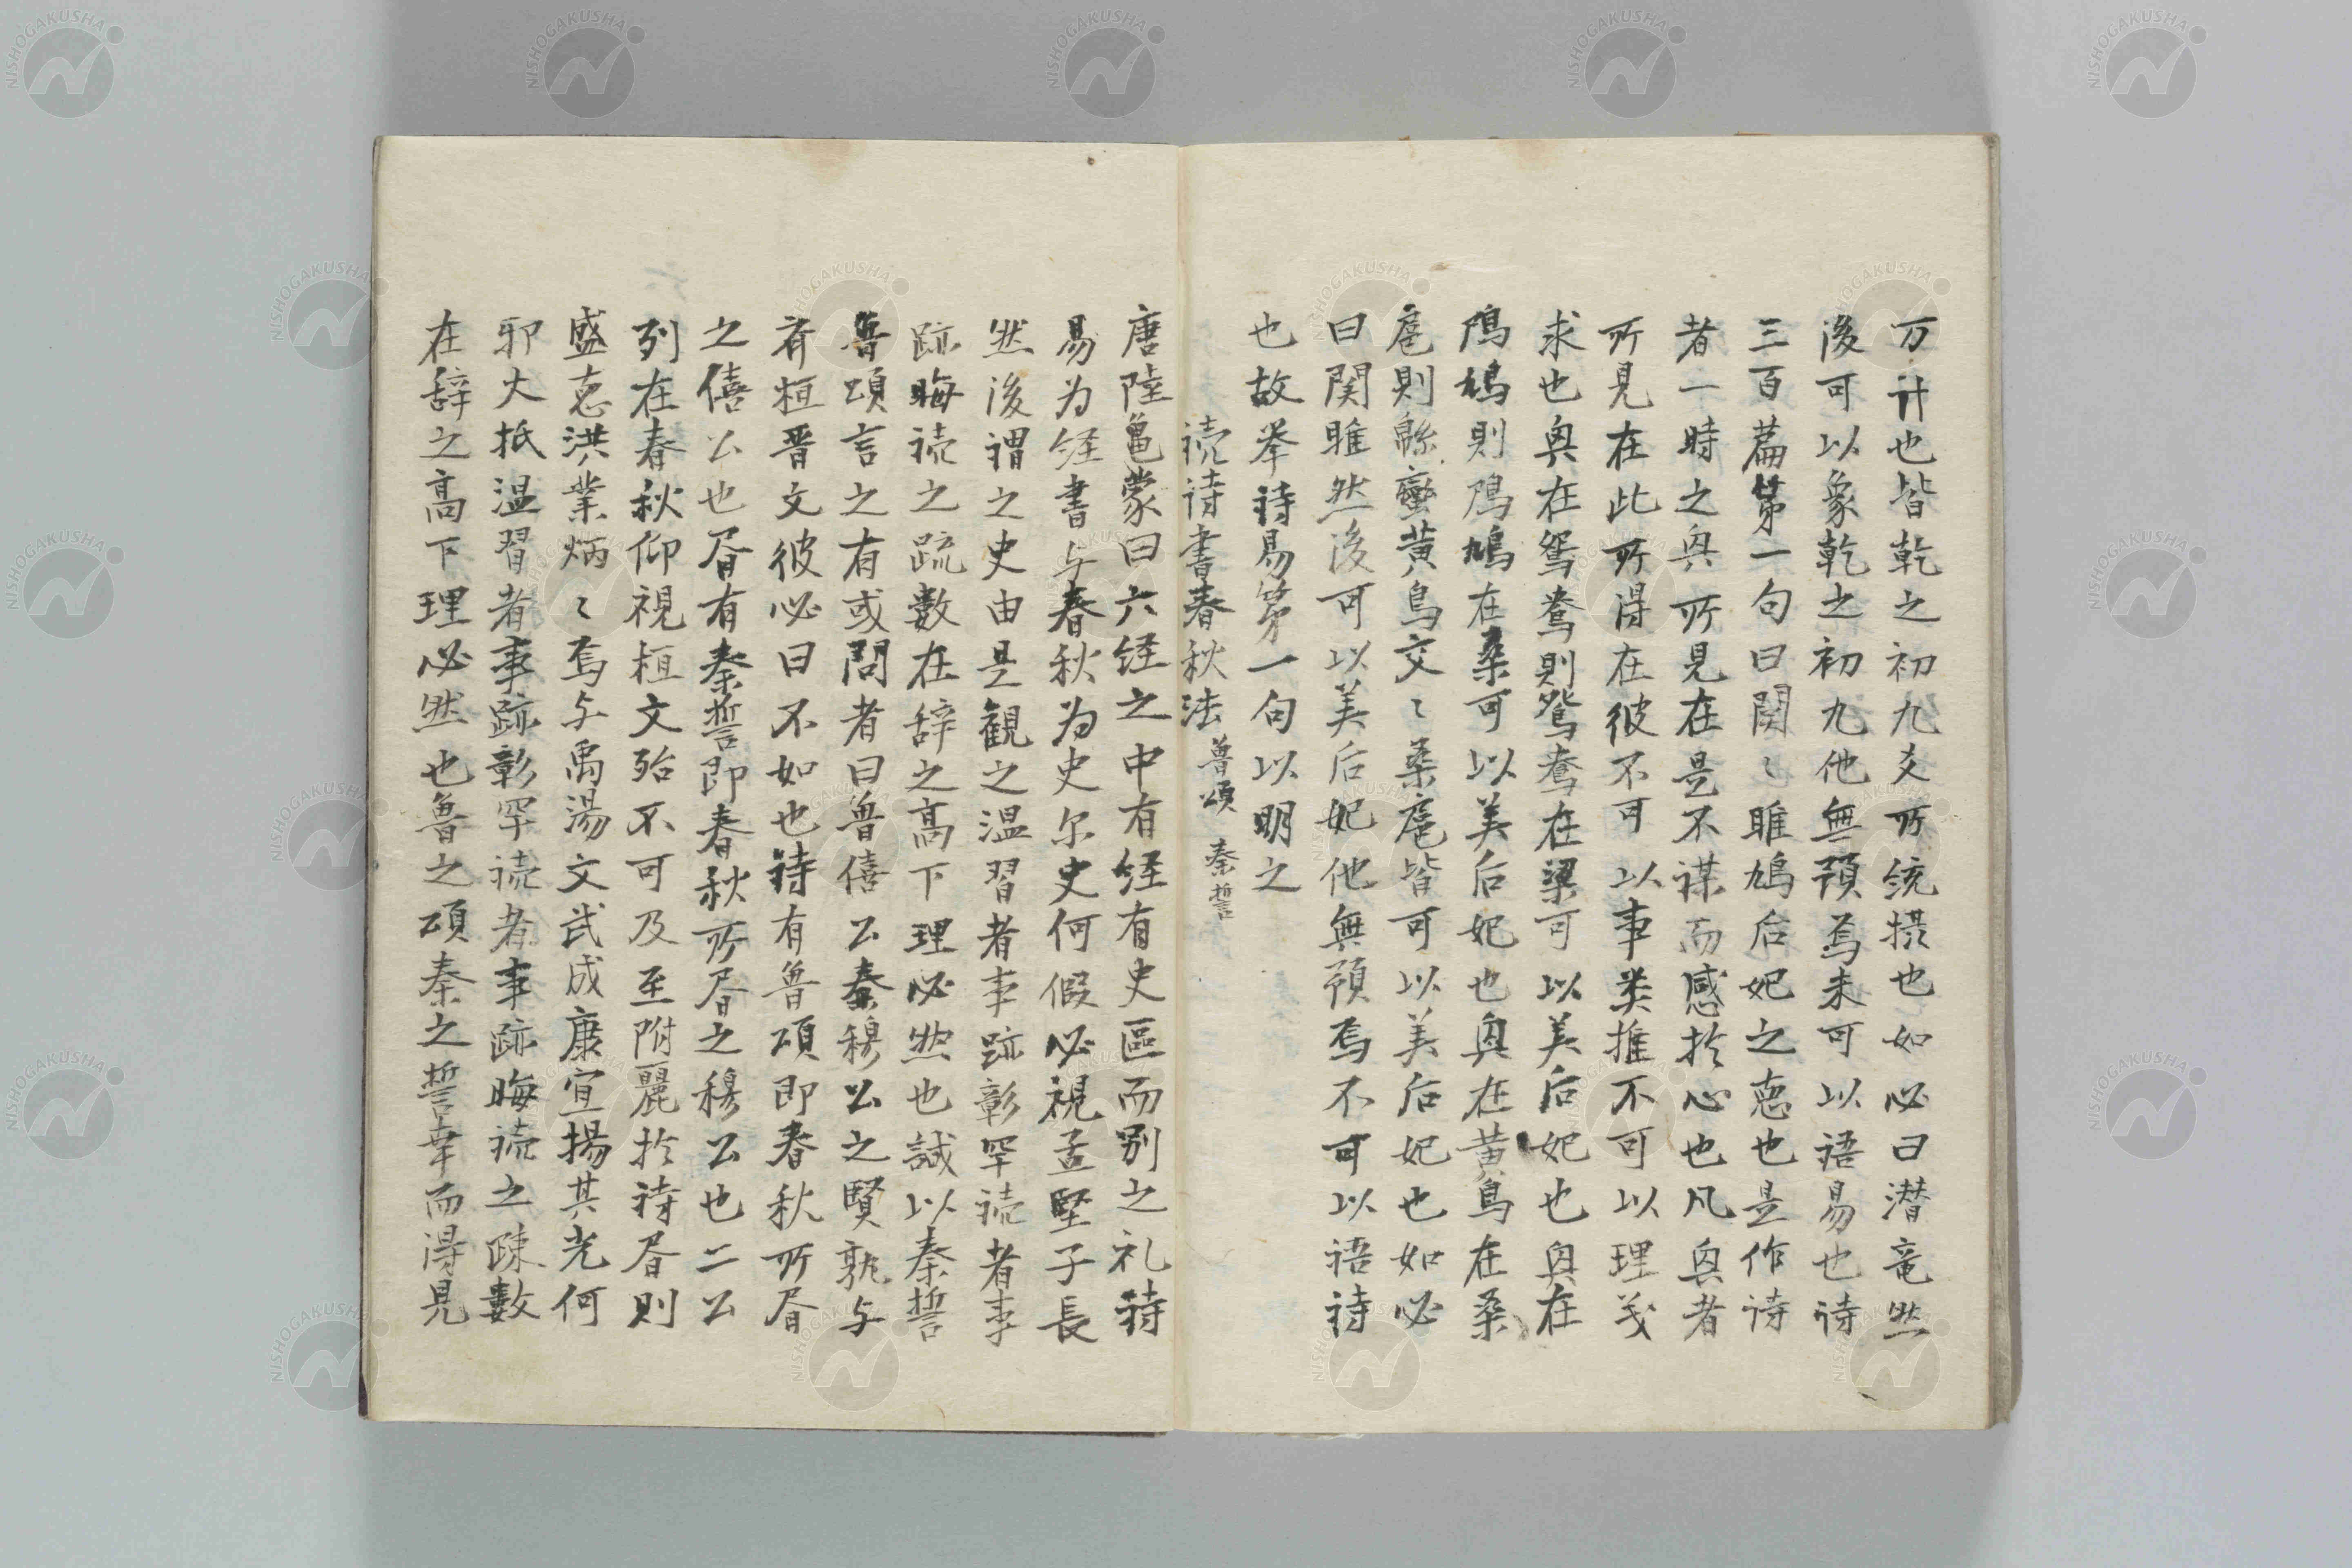 万计也皆乾之初九爻所統摂也如必曰潜竜然
後可以象乾之初九他無預焉未可以語易也诗
三百篇第一句曰関〻雎鳩后妃之恵也是作诗
者一時之興所見在是不謀而感於心也凡興者
所見在此所得在彼不可以事类推不可以理义
求也興在鴛鴦則鴛鴦在梁可以美后妃也興在
鳲鳩則鳲鳩在桑可以美后妃也興在黄鳥在桑
扈則緜蠻黄鳥交〻桑扈皆可以美后妃也如必
曰関雎然後可以美后妃他無預焉不可以語詩
也故挙詩易第一句以明之
読詩書春秋法 魯頌 秦誓
唐陸亀蒙曰六経之中有経有史區而別之礼詩
易为経書与春秋为史尓史何假必視孟堅子長
然後謂之史由是観之温習者事跡彰罕読者事
跡晦読之䟽數在辞之高下理必然也誠以秦誓
魯頌言之有或問者曰魯僖公秦穆公之賢孰与
斉桓晋文彼必曰不如也詩有魯頌即春秋所書
之僖公也書有秦誓即春秋所書之穆公也二公
列在春秋仰視桓文殆不可及至附麗於詩書則
盛恵洪業炳〻焉与禹湯文武成康宣揚其光何
耶大抵温習者事跡彰罕読者事跡晦読之踈數
在辞之高下理必然也魯之頌秦之誓幸而得見